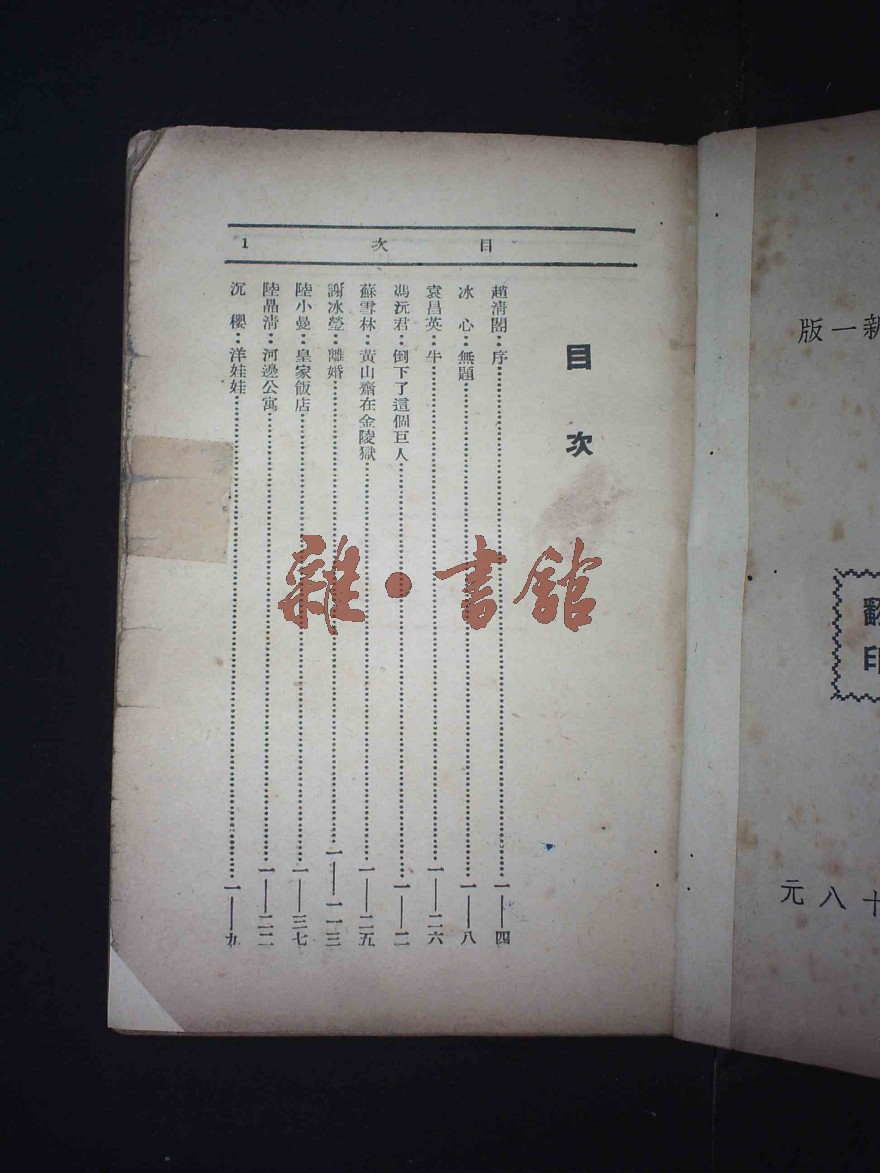 目 次 1
目 次
趙清閣：序 一——四
冰 心：無題 一——八
袁昌英：牛 一——二六
馮沅君：倒下了這個巨人 一——二
蘇雪林：黃山齋在金陵獄 一——二五
謝冰瑩：離婚 一——一一三
陸小曼：皇家飯店 一——三七
陸晶清：河邊公寓 一——二二
沉 櫻：洋娃娃 一——九
雜·書館
新一版
翻印
十八元